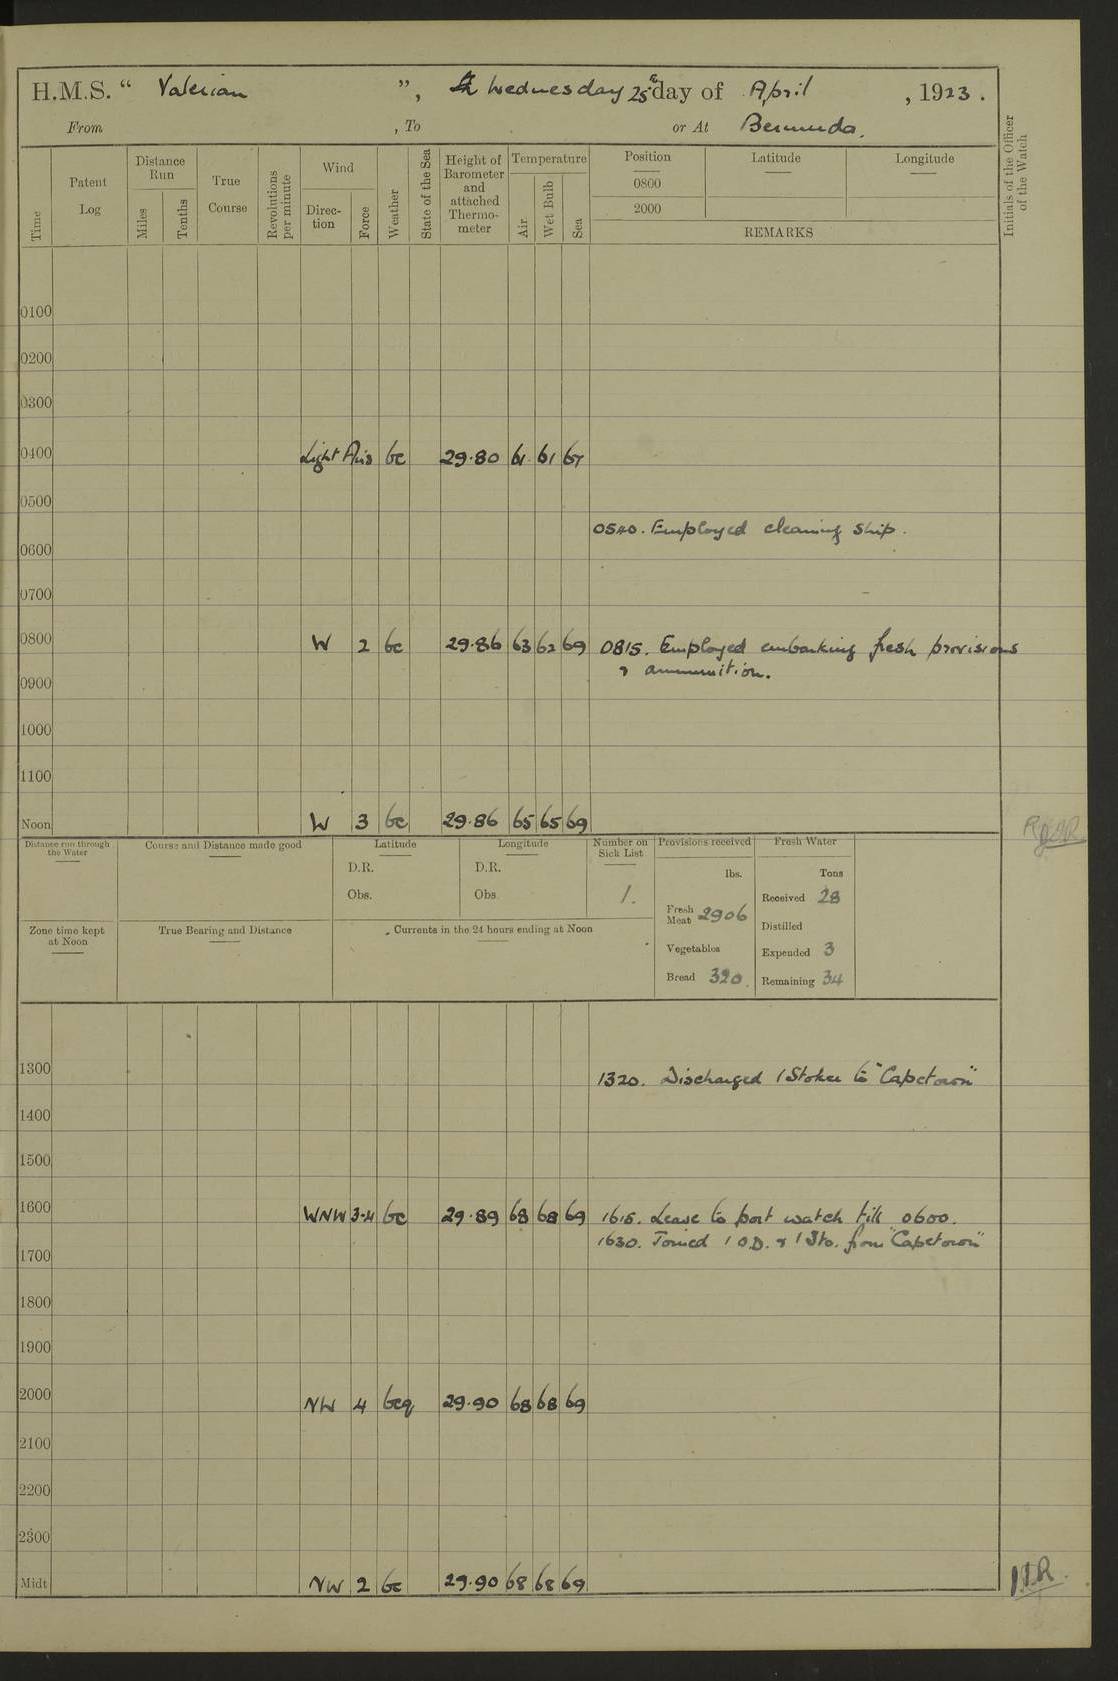 H.M.S. “ Valerian ”, Wednesday 25th day of April , 1923 .
From , To or At Bermuda.
Time
Patent Log
Distance Run
Miles
Tenths
True Course
Revolutions per minute
Wind
Direc- tion
Force
Weather
State of the Sea
Height of Barometer and attached Thermo- meter
Temperature
Air
Wet Bulb
Sea
Position Latitude Longitude
0800
2000
REMARKS
Initials of the Officer of the Watch
0100
0200
0300
0400 Light Airs bc 29.80 61 61 67
0500
0540. Employed cleaning ship.
0600
0700
0800 W 2 bc 29.86 63 62 69 0815. Employed embarking fresh provisions
& ammunition.
0900
1000
1100
Noon W 3 bc 29.86 65 65 69
Distance run through the Water
Course and Distance made good
Latitude
D.R.
Obs.
Longitude
D.R.
Obs.
Number on Sick List
1.
Provisions received
lbs.
Fresh Meat 2906
Vegetables
Bread 320.
Fresh Water
Tons
Received 28
Distilled
Expended 3
Remaining 34
Zone time kept at Noon
True Bearing and Distance
Currents in the 24 hours ending at Noon
1300
1320. Discharged 1 Stoker to "Capetown"
1400
1500
1600 WNW 3-4 bc 29.89 68 68 69 1615. Leave to port watch till 0600.
1630. Joined 1 O.D. & 1 Sto. from "Capetown"
1700
1800
1900
2000 NW 4 bcq 29.90 68 68 69
2100
2200
2300
Midt NW 2 bc 29.90 68 68 69